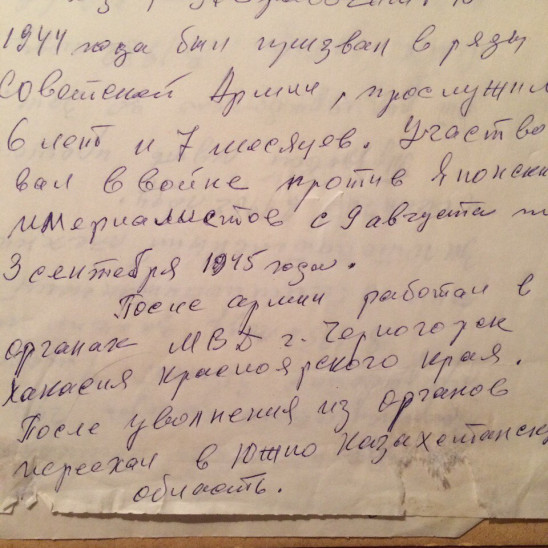 1944 года был призван в ряды
Советской Армии, прослужил
6 лет и 7 месяцев. Участво
вал в войне против Японски
империалистов с 9 августа по
3 сентября 1945 года.
После армии работал в
органах МВД г. Черногорск
Хакасия Красноярского края.
После уволнения из органов
переехал в Южно Казахстанск
область.